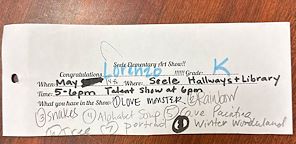 Seele Elementary Art Show!!
Congratulations Lorenzo !!!!! Grade: K
When: May Where: Seele Hallways + Library
Time: 5-6pm Talent Show at 6pm
What you have in the Show: ① LOVE MONSTER ② Rainbow
③ Snakes ④ Alphabet Soup ⑤ Cave Painting
⑦ Portrait Winter Wonderland